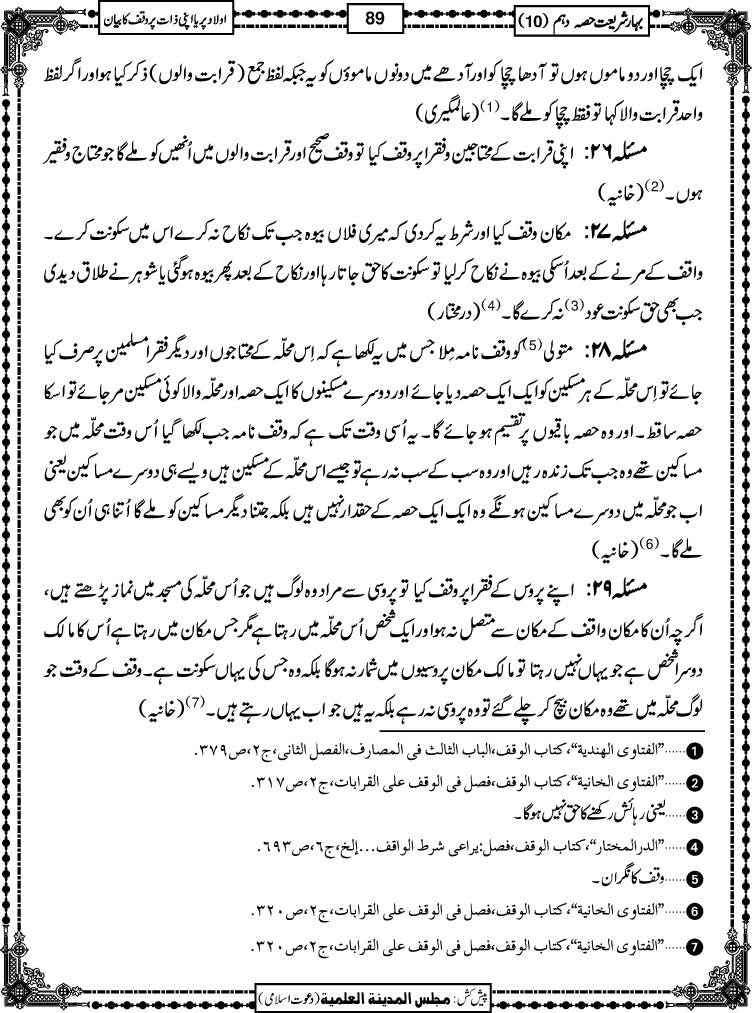 بہار شریعت حصہ دہم (10)
89
اولاد پر یا اپنی ذات پر وقف کا بیان
ایک چچا اور دو ماموں ہوں تو آدھا چچا کو اور آدھے میں دونوں ماموؤں کو یہ جبکہ لفظ جمع (قرابت والوں) ذکر کیا ہو اور اگر لفظ
واحد قرابت والا کہا تو فقط چچا کو ملے گا۔(1) (عالمگیری)
مسئلہ ۲۶: اپنی قرابت کے محتاجین و فقرا پر وقف کیا تو وقف صحیح اور قرابت والوں میں اُنھیں کو ملے گا جو محتاج و فقیر
ہوں۔(2) (خانیہ)
مسئلہ ۲۷: مکان وقف کیا اور شرط یہ کر دی کہ میری فلاں بیوہ جب تک نکاح نہ کرے اس میں سکونت کرے۔
واقف کے مرنے کے بعد اُسکی بیوہ نے نکاح کر لیا تو سکونت کا حق جاتا رہا اور نکاح کے بعد پھر بیوہ ہو گئی یا شوہر نے طلاق دیدی
جب بھی حق سکونت عود(3) نہ کرے گا۔(4) (درمختار)
مسئلہ ۲۸: متولی(5) کو وقف نامہ مِلا جس میں یہ لکھا ہے کہ اِس محلّہ کے محتاجوں اور دیگر فقرا مسلمین پر صرف کیا
جائے تو اِس محلّہ کے ہر مسکین کو ایک ایک حصہ دیا جائے اور دوسرے مسکینوں کا ایک حصہ اور محلّہ والا کوئی مسکین مرجائے تو اسکا
حصہ ساقط۔ اور وہ حصہ باقیوں پر تقسیم ہو جائے گا۔ یہ اُسی وقت تک ہے کہ وقف نامہ جب لکھا گیا اُس وقت محلّہ میں جو
مساکین تھے وہ جب تک زندہ رہیں اور وہ سب کے سب نہ رہے تو جیسے اس محلّہ کے مسکین ہیں ویسے ہی دوسرے مساکین یعنی
اب جو محلّہ میں دوسرے مساکین ہونگے وہ ایک ایک حصہ کے حقدار نہیں ہیں بلکہ جتنا دیگر مساکین کو ملے گا اُتنا ہی اُن کو بھی
ملے گا۔(6) (خانیہ)
مسئلہ ۲۹: اپنے پروس کے فقرا پر وقف کیا تو پروسی سے مراد وہ لوگ ہیں جو اُس محلّہ کی مسجد میں نماز پڑھتے ہیں،
اگرچہ اُن کا مکان واقف کے مکان سے متصل نہ ہو اور ایک شخص اُس محلّہ میں رہتا ہے مگر جس مکان میں رہتا ہے اُس کا مالک
دوسرا شخص ہے جو یہاں نہیں رہتا تو مالک مکان پروسیوں میں شمار نہ ہوگا بلکہ وہ جس کی یہاں سکونت ہے۔ وقف کے وقت جو
لوگ محلّہ میں تھے وہ مکان بیچ کر چلے گئے تو وہ پروسی نہ رہے بلکہ یہ ہیں جو اب یہاں رہتے ہیں۔(7) (خانیہ)
1......"الفتاوی الهندية"، كتاب الوقف، الباب الثالث فی المصارف، الفصل الثانی، ج٢، ص٣٧٩.
2......"الفتاوی الخانية"، كتاب الوقف، فصل فی الوقف علی القرابات، ج٢، ص٣١٧.
3......یعنی رہائش رکھنے کا حق نہیں ہوگا۔
4......"الدرالمختار"، كتاب الوقف، فصل: يراعی شرط الواقف...إلخ، ج٦، ص٦٩٣.
5......وقف کا نگران۔
6......"الفتاوی الخانية"، كتاب الوقف، فصل فی الوقف علی القرابات، ج٢، ص٣٢٠.
7......"الفتاوی الخانية"، كتاب الوقف، فصل فی الوقف علی القرابات، ج٢، ص٣٢٠.
پیش کش: مجلس المدينة العلمية (دعوت اسلامی)